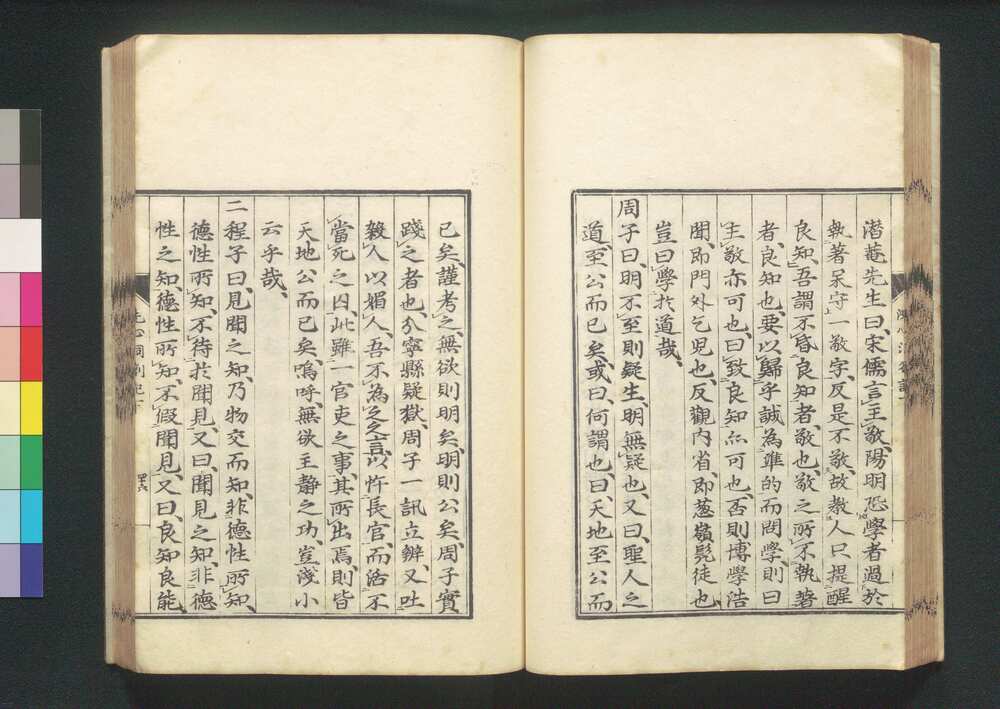 潛菴先生曰、宋儒言主敬、陽明恐學者過於
執著呆守一敬字、反是不敬、故教人只提醒
良知、吾謂不昏良知者、敬也、敬之所不執著
者、良知也、要以歸乎誠為準的、而問學、則曰
主敬亦可也、曰致良知亦可也、否則博學浩
聞、即門外乞児也、反觀内省、即葱嶺髡徒也
豈曰學於道哉、
周子曰、明不至則疑生、明無疑也、又曰、聖人之
道、至公而已矣、或曰、何謂也、曰、天地至公而
已矣、謹考之、無欲則明矣、明則公矣、周子實
踐之者也、分寧縣疑獄、周子一訊立辨、又吐
殺人以媚人、吾不為之之言、以忤長官、而活不
當死之囚、此雖一官吏之事、其所出焉、則皆
天地公而已矣、嗚呼、無欲主靜之功、豈淺小
云乎哉、
二程子曰、見聞之知、乃物交而知、非德性所知、
德性所知、不待於聞見、又曰、聞見之知、非德
性之知、德性所知、不假聞見、又曰、良知良能
洗心洞劄記下
四六